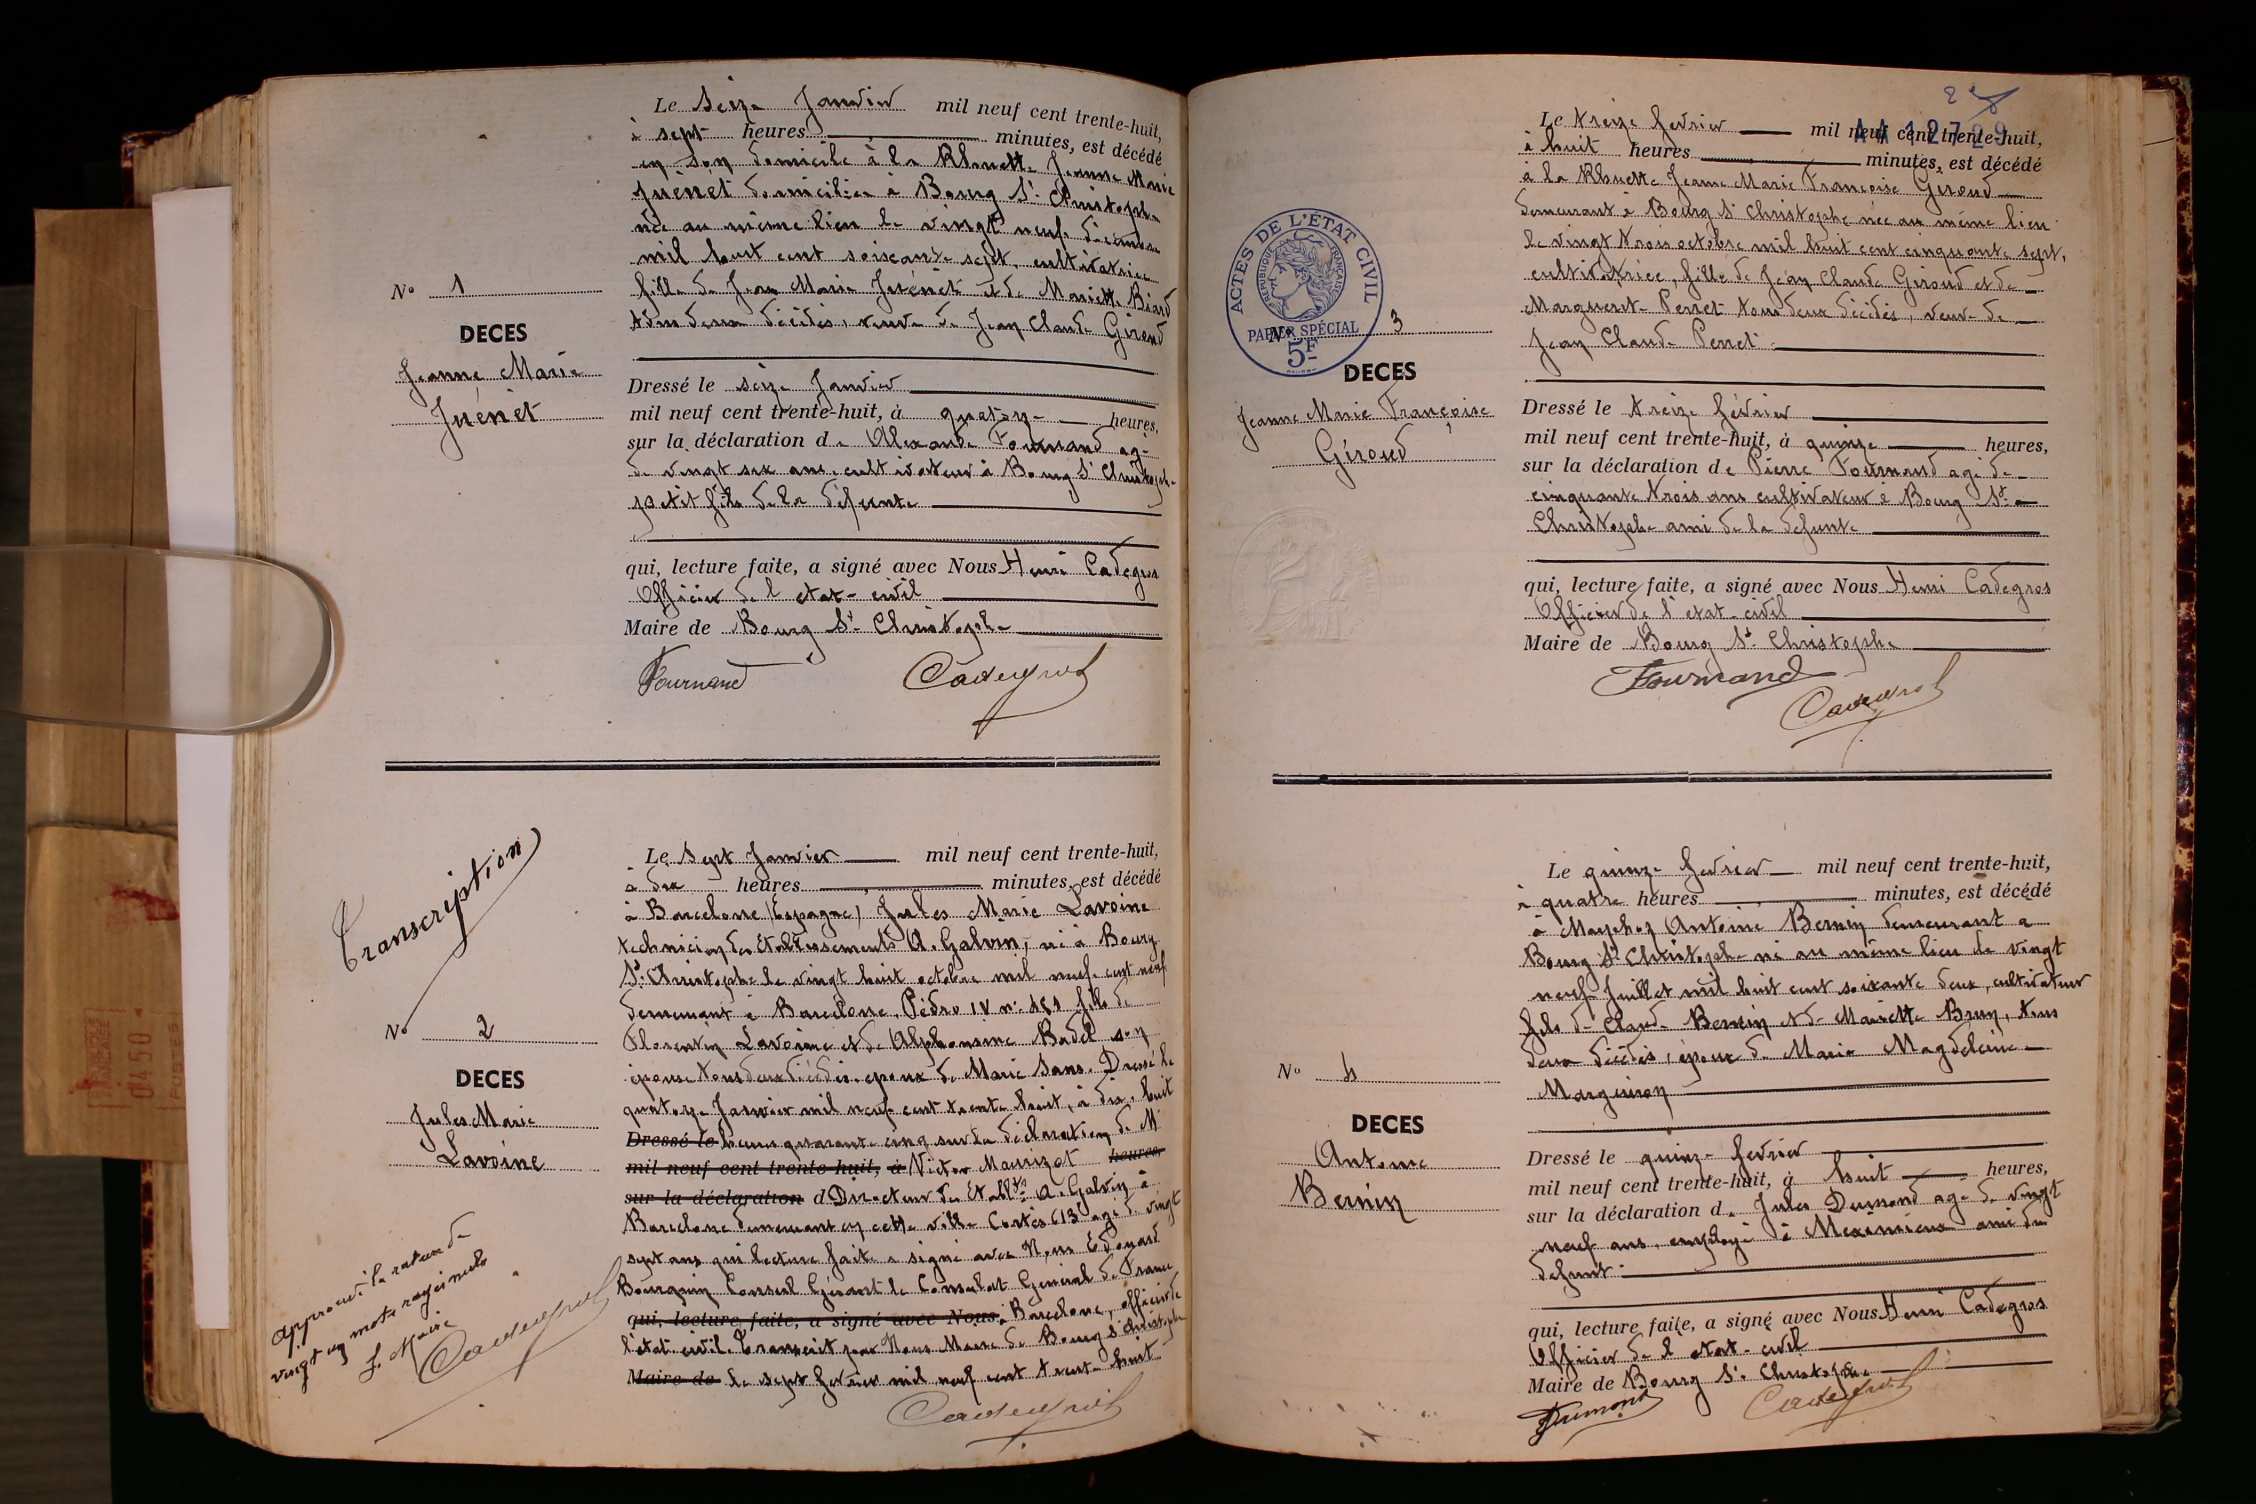 Le seize Janvier mil neuf cent trente-huit,
à sept heures minutes, est décédé
en son domicile à la Rhuette Jeanne Marie
Juénet domiciliée à Bourg St Christophe
née au même lieu le vingt neuf décembre
mil huit cent soixante sept, cultivatrice
fille de Jean Marie Juénet et de Mariette Biard
tous deux décédés, veuve de Jean Claude Giroud
No 1
DECES
Jeanne Marie
Juénet
Dressé le seize Janvier
mil neuf cent trente-huit, à quatorze heures,
sur la déclaration de Alexandre Fournand agé
de vingt six ans, cultivateur à Bourg St Christophe
petit fils de la défunte
qui, lecture faite, a signé avec Nous Henri Cadegros
Officier de l'etat-civil
Maire de Bourg St Christophe
Fournand Cadegros
Transcription
No 2
DECES
Jules Marie
Lavoine
Approuvé la rature de
vingt un mots rayés nuls
Le Maire
Cadegros
Le sept Janvier mil neuf cent trente-huit,
à dix heures minutes, est décédé
à Barcelone (Espagne) Jules Marie Lavoine
technicien des Etablissements A. Galvin, né à Bourg
St Christophe le vingt huit octobre mil neuf cent neuf
demeurant à Barcelone, Pédro IV n° 481 fils de
Florentin Lavoine et de Alphonsine Badel son
épouse tous deux décédés. époux de Marie Sans. Dressé le
quatorze Janvier mil neuf cent trente huit, à dix-huit
Dressé le heures quarante cinq sur la déclaration de M.
mil neuf cent trente-huit, à Victor Maurizot heures,
sur la déclaration d Directeur des Etablts A. Galvin à
Barcelone demeurant en cette ville Cortès 613 agé de vingt
sept ans qui lecture faite a signé avec Nous Edouard
Bourguin Consul Gérant le Consulat Général de France
qui, lecture faite, a signé avec Nous à Barcelone, officier de
l'état civil. Transcrit par Nous Maire de Bourg St Christophe
Maire de le sept février mil neuf cent trente-huit
Cadegros
28
AA 12729
Le treize fevrier mil neuf cent trente-huit,
à huit heures minutes, est décédé
à la Rhuette Jeanne Marie Françoise Giroud
demeurant à Bourg St Christophe née au même lieu
le vingt trois octobre mil huit cent cinquante sept,
cultivatrice, fille de Jean Claude Giroud et de
Marguerite Perret tous deux décédés, veuve de
Jean Claude Perret
ACTES DE L'ÉTAT CIVIL
RÉPUBLIQUE FRANÇAISE
PAPIER SPÉCIAL
5F
No 3
DECES
Jeanne Marie Françoise
Giroud
Dressé le treize février
mil neuf cent trente-huit, à quinze heures,
sur la déclaration de Pierre Fournand agé de
cinquante trois ans cultivateur à Bourg St
Christophe ami de la défunte
qui, lecture faite, a signé avec Nous Henri Cadegros
Officier de l'etat-civil
Maire de Bourg St Christophe
Fournand
Cadegros
Le quinze fevrier mil neuf cent trente-huit,
à quatre heures minutes, est décédé
à Antoine Bernin demeurant à
Bourg St Christophe né au même lieu le vingt
neuf Juillet mil huit cent soixante deux, cultivateur
fils de Claude Bernin et de Mariette Brun, tous
deux décédés, époux de Marie Magdeleine
Marguiron
No 4
DECES
Antoine
Bernin
Dressé le quinze fevrier
mil neuf cent trente-huit, à huit heures,
sur la déclaration de Jules Dumond agé de vingt
neuf ans, employé à Meximieux ami du
défunt.
qui, lecture faite, a signé avec Nous Henri Cadegros
Officier de l'etat-civil
Maire de Bourg St Christophe
Dumond Cadegros
0450
POSTES